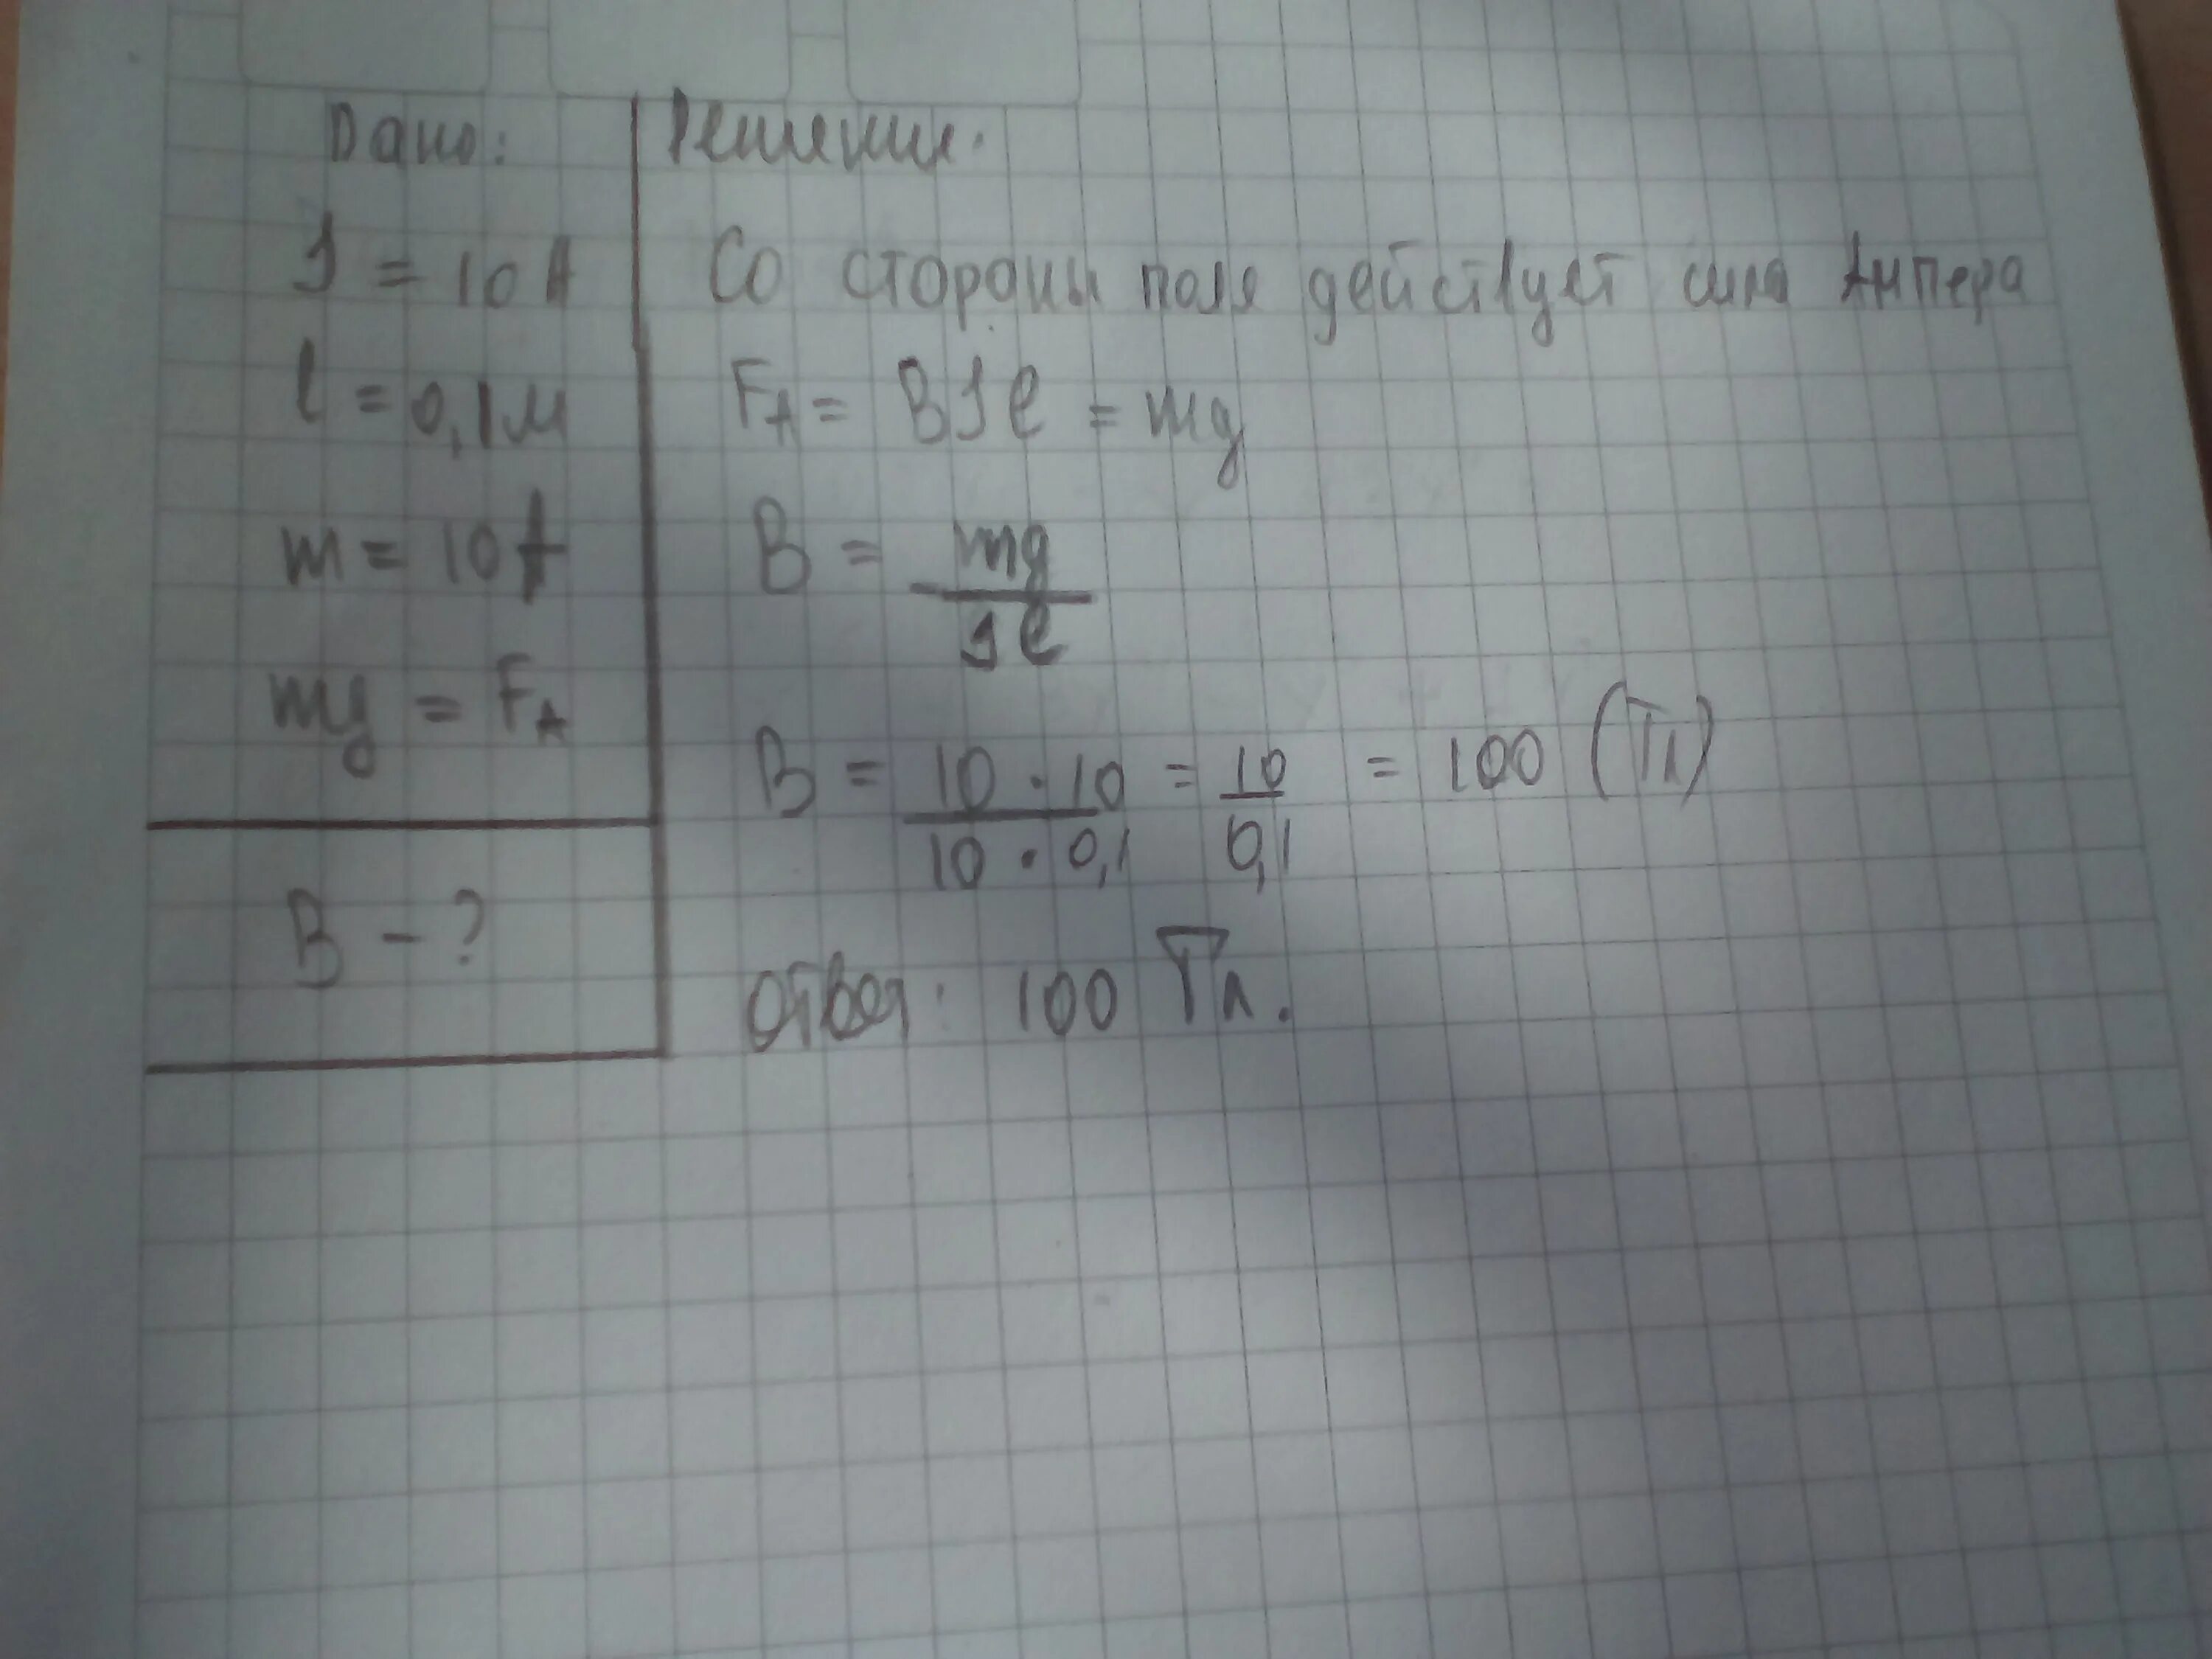 Дано:
I = 10 A
l = 0,1 м
m = 10
mg = FA
B - ?
Решение.
Со стороны поля действует сила Ампера
FA = BIl = mg
B = mg / Il
B = 10 · 10 / 10 · 0,1 = 10 / 0,1 = 100 (Тл)
Ответ: 100 Тл.